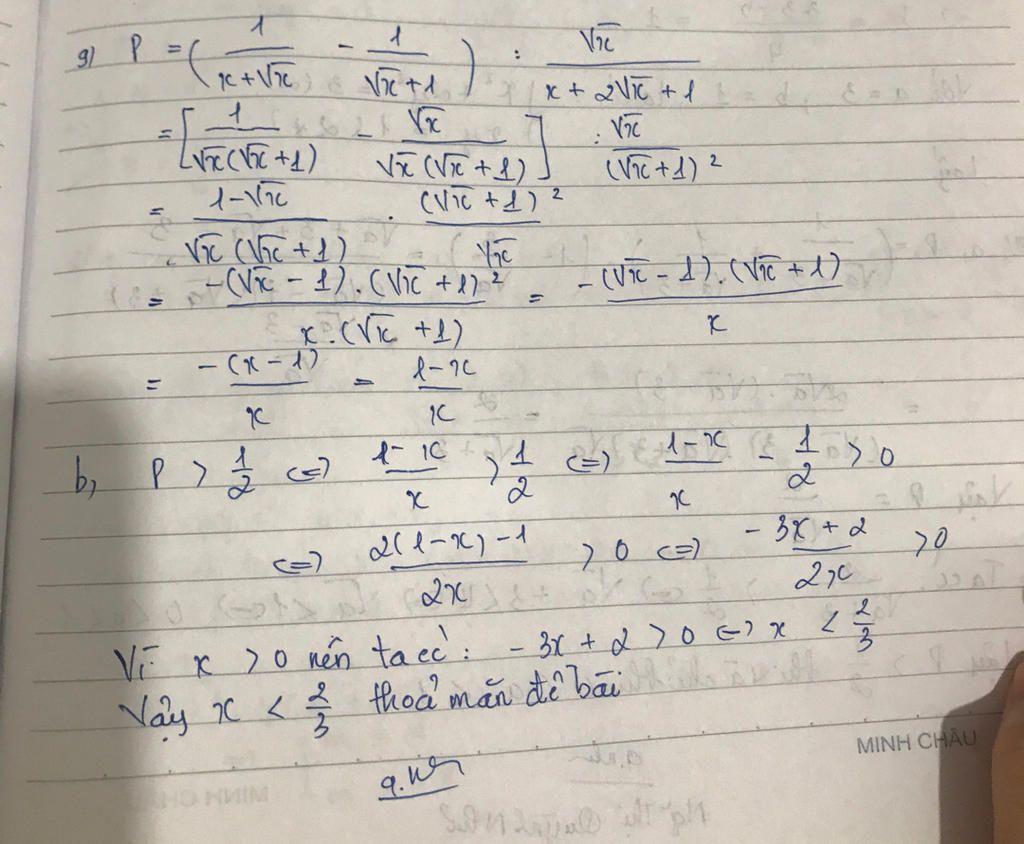 a) P = ( 1/(x+√x) − 1/(√x+1) ) : √x/(x+2√x+1)
= [ 1/(√x(√x+1)) − √x/(√x(√x+1)) ] : √x/(√x+1)²
= (1−√x)/(√x(√x+1)) . (√x+1)²/√x
= −(√x−1).(√x+1)²/(x.(√x+1)) = −(√x−1).(√x+1)/x
= −(x−1)/x = (1−x)/x
b, P > 1/2 <=> (1−x)/x > 1/2 <=> (1−x)/x − 1/2 > 0
<=> (2(1−x)−1)/2x > 0 <=> (−3x+2)/2x > 0
Vì x > 0 nên ta có: −3x + 2 > 0 <=> x < 2/3
Vậy x < 2/3 thoả mãn đề bài
MINH CHÂU